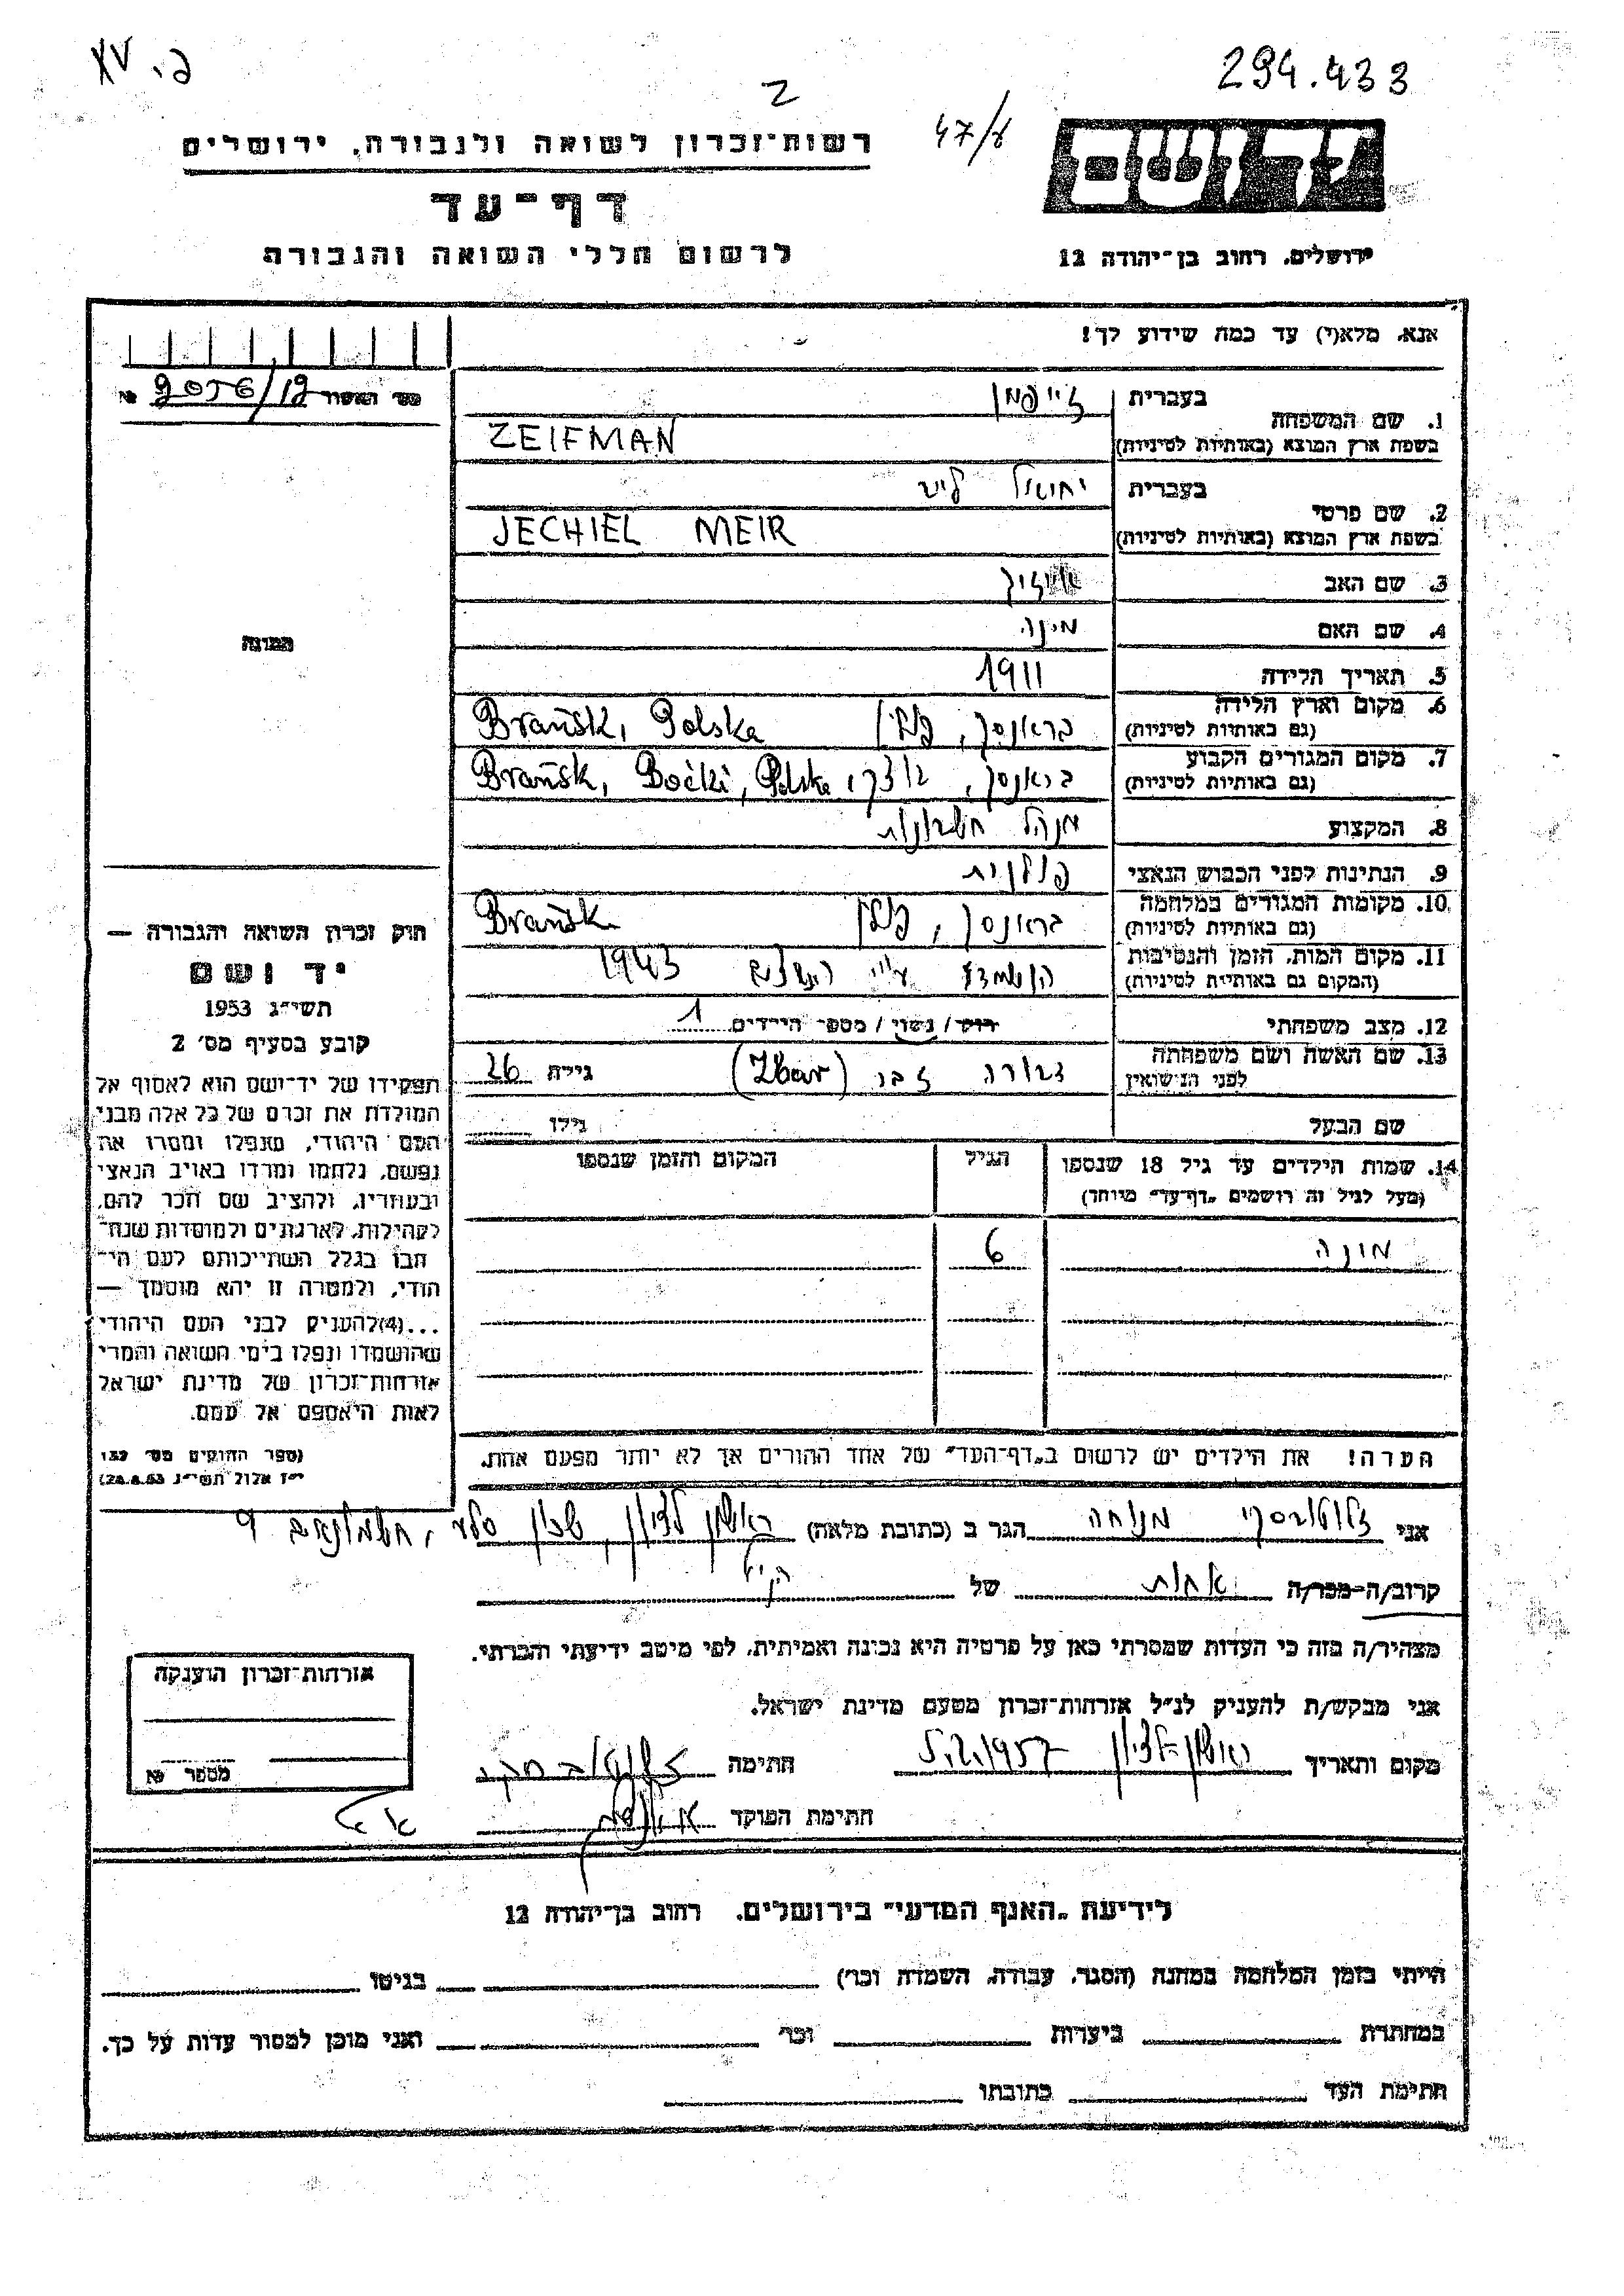 XV .פ
294.433
רשות־זכרון לשואה ולגבורה, ירושלים
דף־עד
לרשום חללי השואה והגבורה
ירושלים, רחוב בן־יהודה 12
אנא, מלא(י) עד כמה שידוע לך!
מס׳ האשור №
1. שם המשפחה בעברית זייפמן
בשפת ארץ המוצא (באותיות לטיניות) ZEIFMAN
2. שם פרטי בעברית יחיאל
בשפת ארץ המוצא (באותיות לטיניות) JECHIEL MEIR
3. שם האב
4. שם האם מינה
5. תאריך הלידה 1911
6. מקום וארץ הלידה בראנסק, פולין Brańsk, Polska
(גם באותיות לטיניות)
7. מקום המגורים הקבוע בראנסק, Brańsk, Boćki, Polska
(גם באותיות לטיניות)
8. המקצוע מנהל חשבונות
9. הנתינות לפני הכבוש הנאצי פולנית
10. מקומות המגורים במלחמה בראנסק, פולין Brańsk
(גם באותיות לטיניות)
11. מקום המות, הזמן והנסיבות 1943
(המקום גם באותיות לטיניות)
12. מצב משפחתי רווק / נשוי / מספר הילדים 1
13. שם האשה ושם משפחתה זבר (Zbar) גילה 26
לפני הנישואין
שם הבעל גילו
14. שמות הילדים עד גיל 18 שנספו הגיל המקום והזמן שנספו
(מעל לגיל זה רושמים „דף־עד״ מיוחד)
6
הערה! את הילדים יש לרשום ב„דף־העד״ של אחד ההורים אך לא יותר מפעם אחת.
התמונה
חוק זכרון השואה והגבורה —
יד ושם
תשי״ג 1953
קובע בסעיף מס׳ 2
תפקידו של יד־ושם הוא לאסוף אל
המולדת את זכרם של כל אלה מבני
העם היהודי, שנפלו ומסרו את
נפשם, נלחמו ומרדו באויב הנאצי
ובעוזריו, ולהציב שם וזכר להם,
לקהילות, לארגונים ולמוסדות שנח־
רבו בגלל השתייכותם לעם הי־
הודי, ולמטרה זו יהא מוסמך —
...(4)להעניק לבני העם היהודי
שהושמדו ונפלו בימי השואה והמרי
אזרחות־זכרון של מדינת ישראל
לאות היאספם אל עמם.
(ספר החוקים מס׳ 132
י״ז אלול תשי״ג 28.8.53)
אני זלוטובסקי מנוחה הגר ב (כתובת מלאה) ראשון לציון,
קרוב/ה־מכר/ה אחות של הנ״ל
מצהיר/ה בזה כי העדות שמסרתי כאן על פרטיה היא נכונה ואמיתית, לפי מיטב ידיעתי והכרתי.
אני מבקש/ת להעניק לנ״ל אזרחות־זכרון מטעם מדינת ישראל.
מקום ותאריך ראשון־לציון חתימה
חתימת הפוקד
אזרחות־זכרון הוענקה
מספר №
לידיעת „האגף המדעי״ בירושלים, רחוב בן־יהודה 12
הייתי בזמן המלחמה במחנה (הסגר, עבודה, השמדה וכר׳) בגיטו
במחתרת ביערות וכר׳ ואני מוכן למסור עדות על כך.
חתימת העד כתובתו